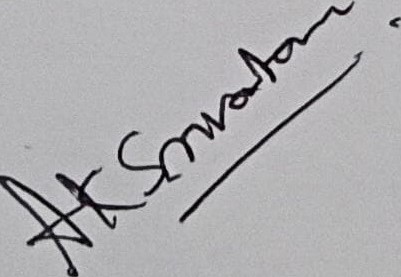 AK Srivastava